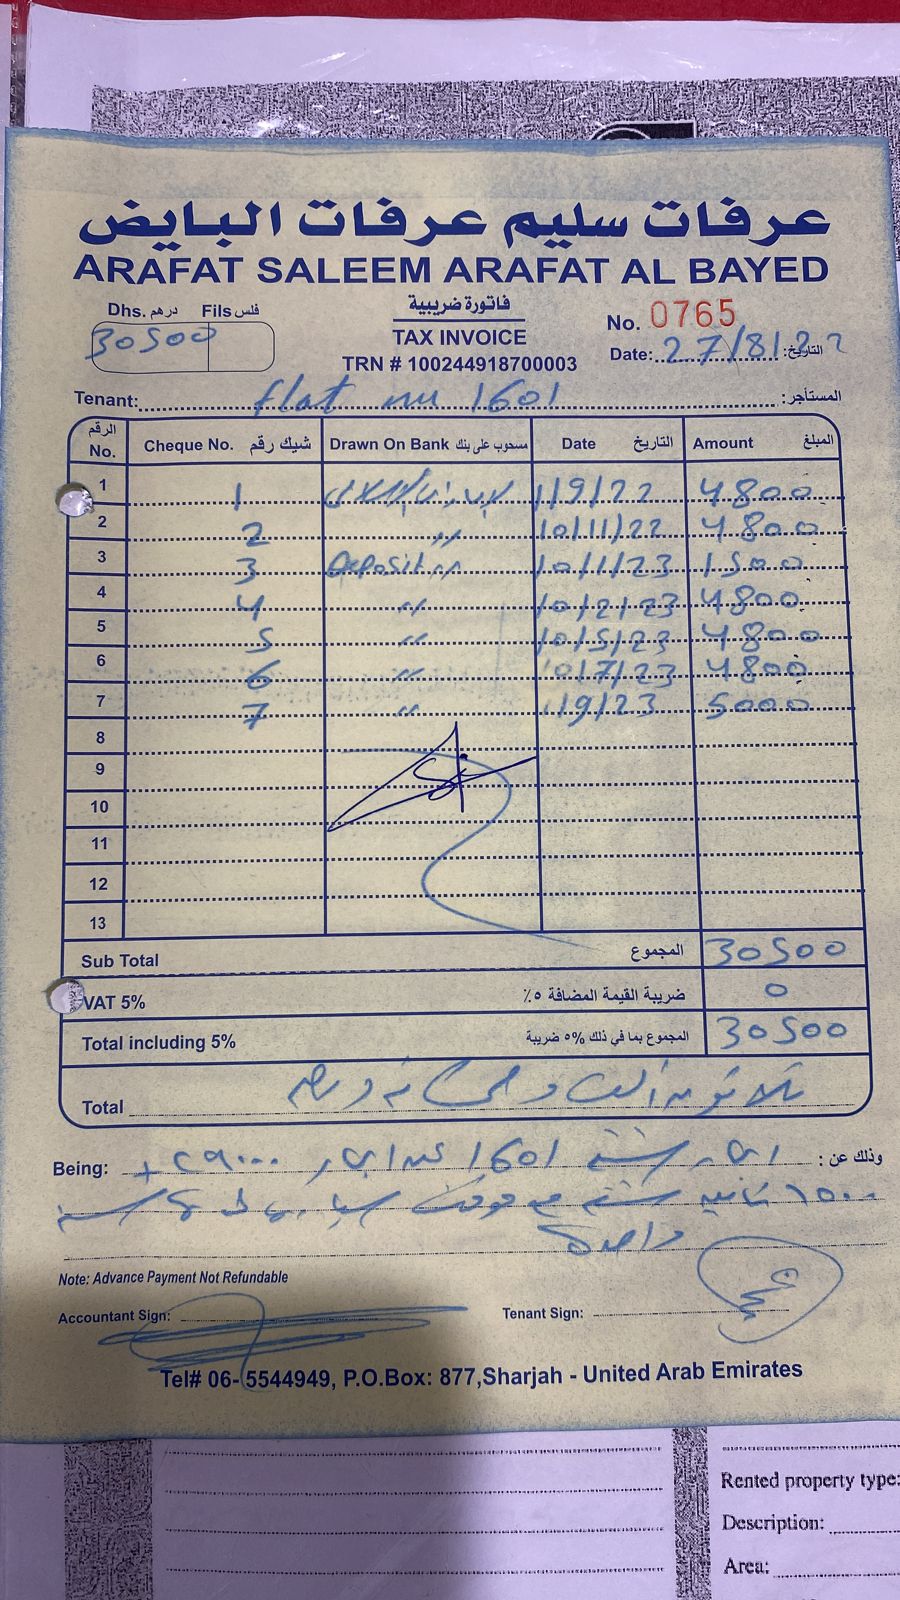 عرفات سليم عرفات البايض
ARAFAT SALEEM ARAFAT AL BAYED
Dhs. درهم Fils فلس
30500
فاتورة ضريبية
TAX INVOICE
TRN # 100244918700003
No. 0765
Date: 27/8/22 التاريخ:
Tenant: flat no 1601 المستأجر:
الرقم No. Cheque No. شيك رقم Drawn On Bank مسحوب على بنك Date التاريخ Amount المبلغ
1 1 1/9/22 4800
2 2 " 10/11/22 4800
3 3 Deposit " 10/1/23 1500
4 4 " 10/2/23 4800
5 5 " 10/5/23 4800
6 6 " 10/7/23 4800
7 7 " 1/9/23 5000
8
9
10
11
12
13
Sub Total المجموع 30500
VAT 5% ضريبة القيمة المضافة ٥٪ 0
Total including 5% المجموع بما في ذلك 5% ضريبة 30500
Total
Being: 1601 ٢٩٠٠٠ + وذلك عن:
١٥٠٠
واحدة
Note: Advance Payment Not Refundable
Accountant Sign: Tenant Sign:
Tel# 06- 5544949, P.O.Box: 877,Sharjah - United Arab Emirates
Rented property type:
Description:
Area: